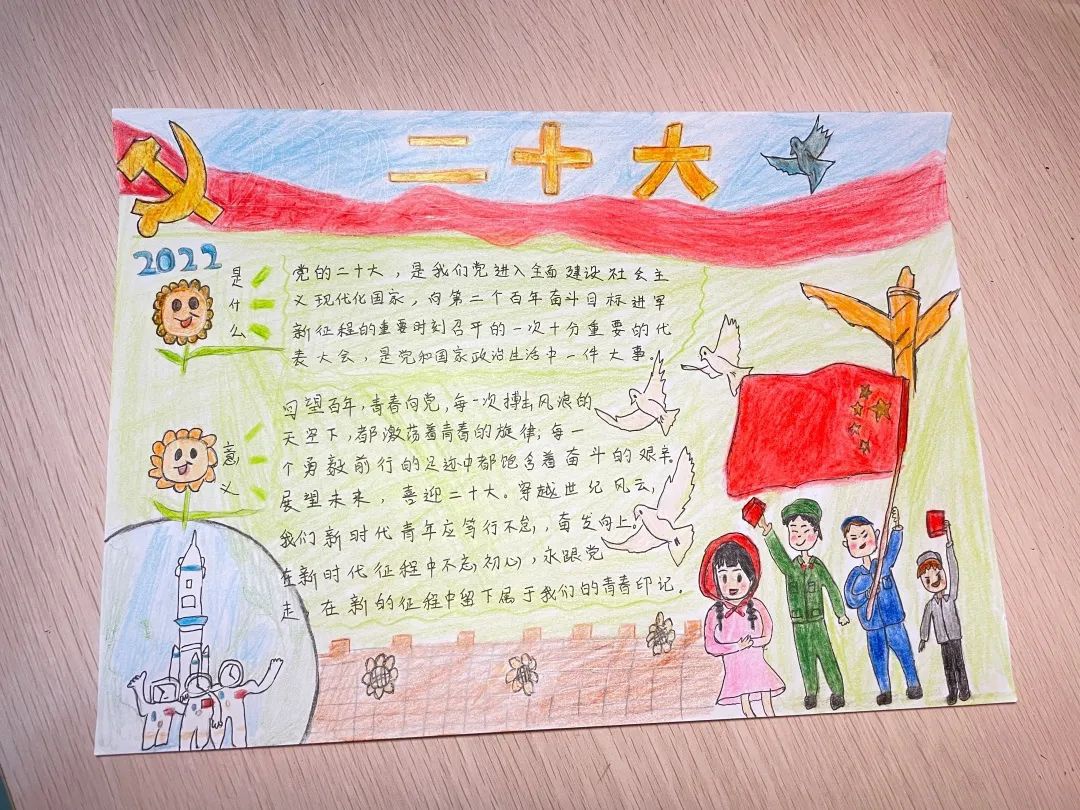 二十大
2022
是什么
党的二十大，是我们党进入全面建设社会主
义现代化国家，向第二个百年奋斗目标进军
新征程的重要时刻召开的一次十分重要的代
表大会，是党和国家政治生活中一件大事。
意义
回望百年，青春向党，每一次搏击风浪的
天空下，都激荡着青春的旋律，每一
个勇毅前行的足迹中都饱含着奋斗的艰辛。
展望未来，喜迎二十大。穿越世纪风云，
我们新时代青年应笃行不怠，奋发向上。
在新时代征程中不忘初心，永跟党
走，在新的征程中留下属于我们的青春印记。